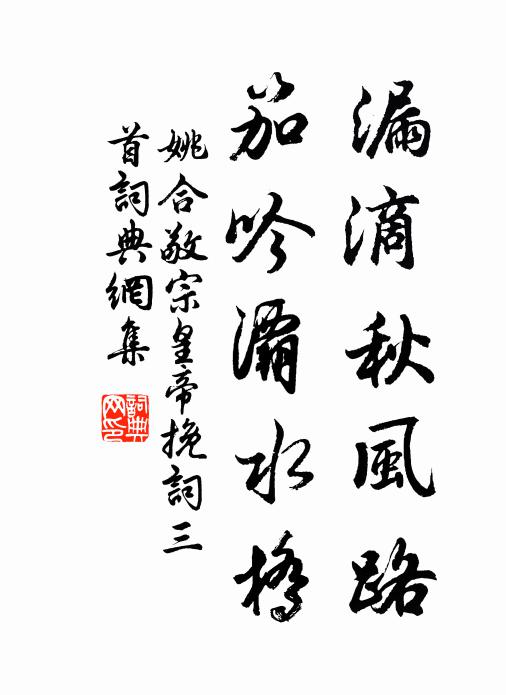 漏滴秋風路
笳吟灞水橋
姚合敬宗皇帝挽詞三
首詞典網集
詞典
网印